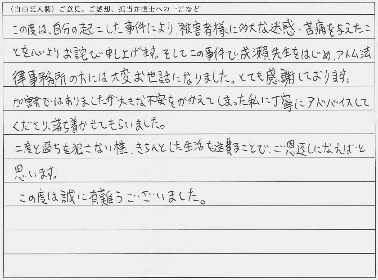 (自由記入欄) ご意見、ご感想、担当弁護士への一言など
この度は、自分の起こした事件により、被害者様に多大な迷惑・苦痛を与えたこ
とを心よりお詫び申し上げます。そしてこの事件で成瀬先生をはじめ、アトム法
律事務所の方には大変お世話になりました。とても感謝しております。
ではありましたが大きな不安をかかえてしまった私に丁寧にアドバイスして
くださり、落ち着かせてもらいました。
二度と過ちを犯さない様、きちんとした生活を送ることで、ご恩返しになればと
思います。
この度は誠に有難うございました。